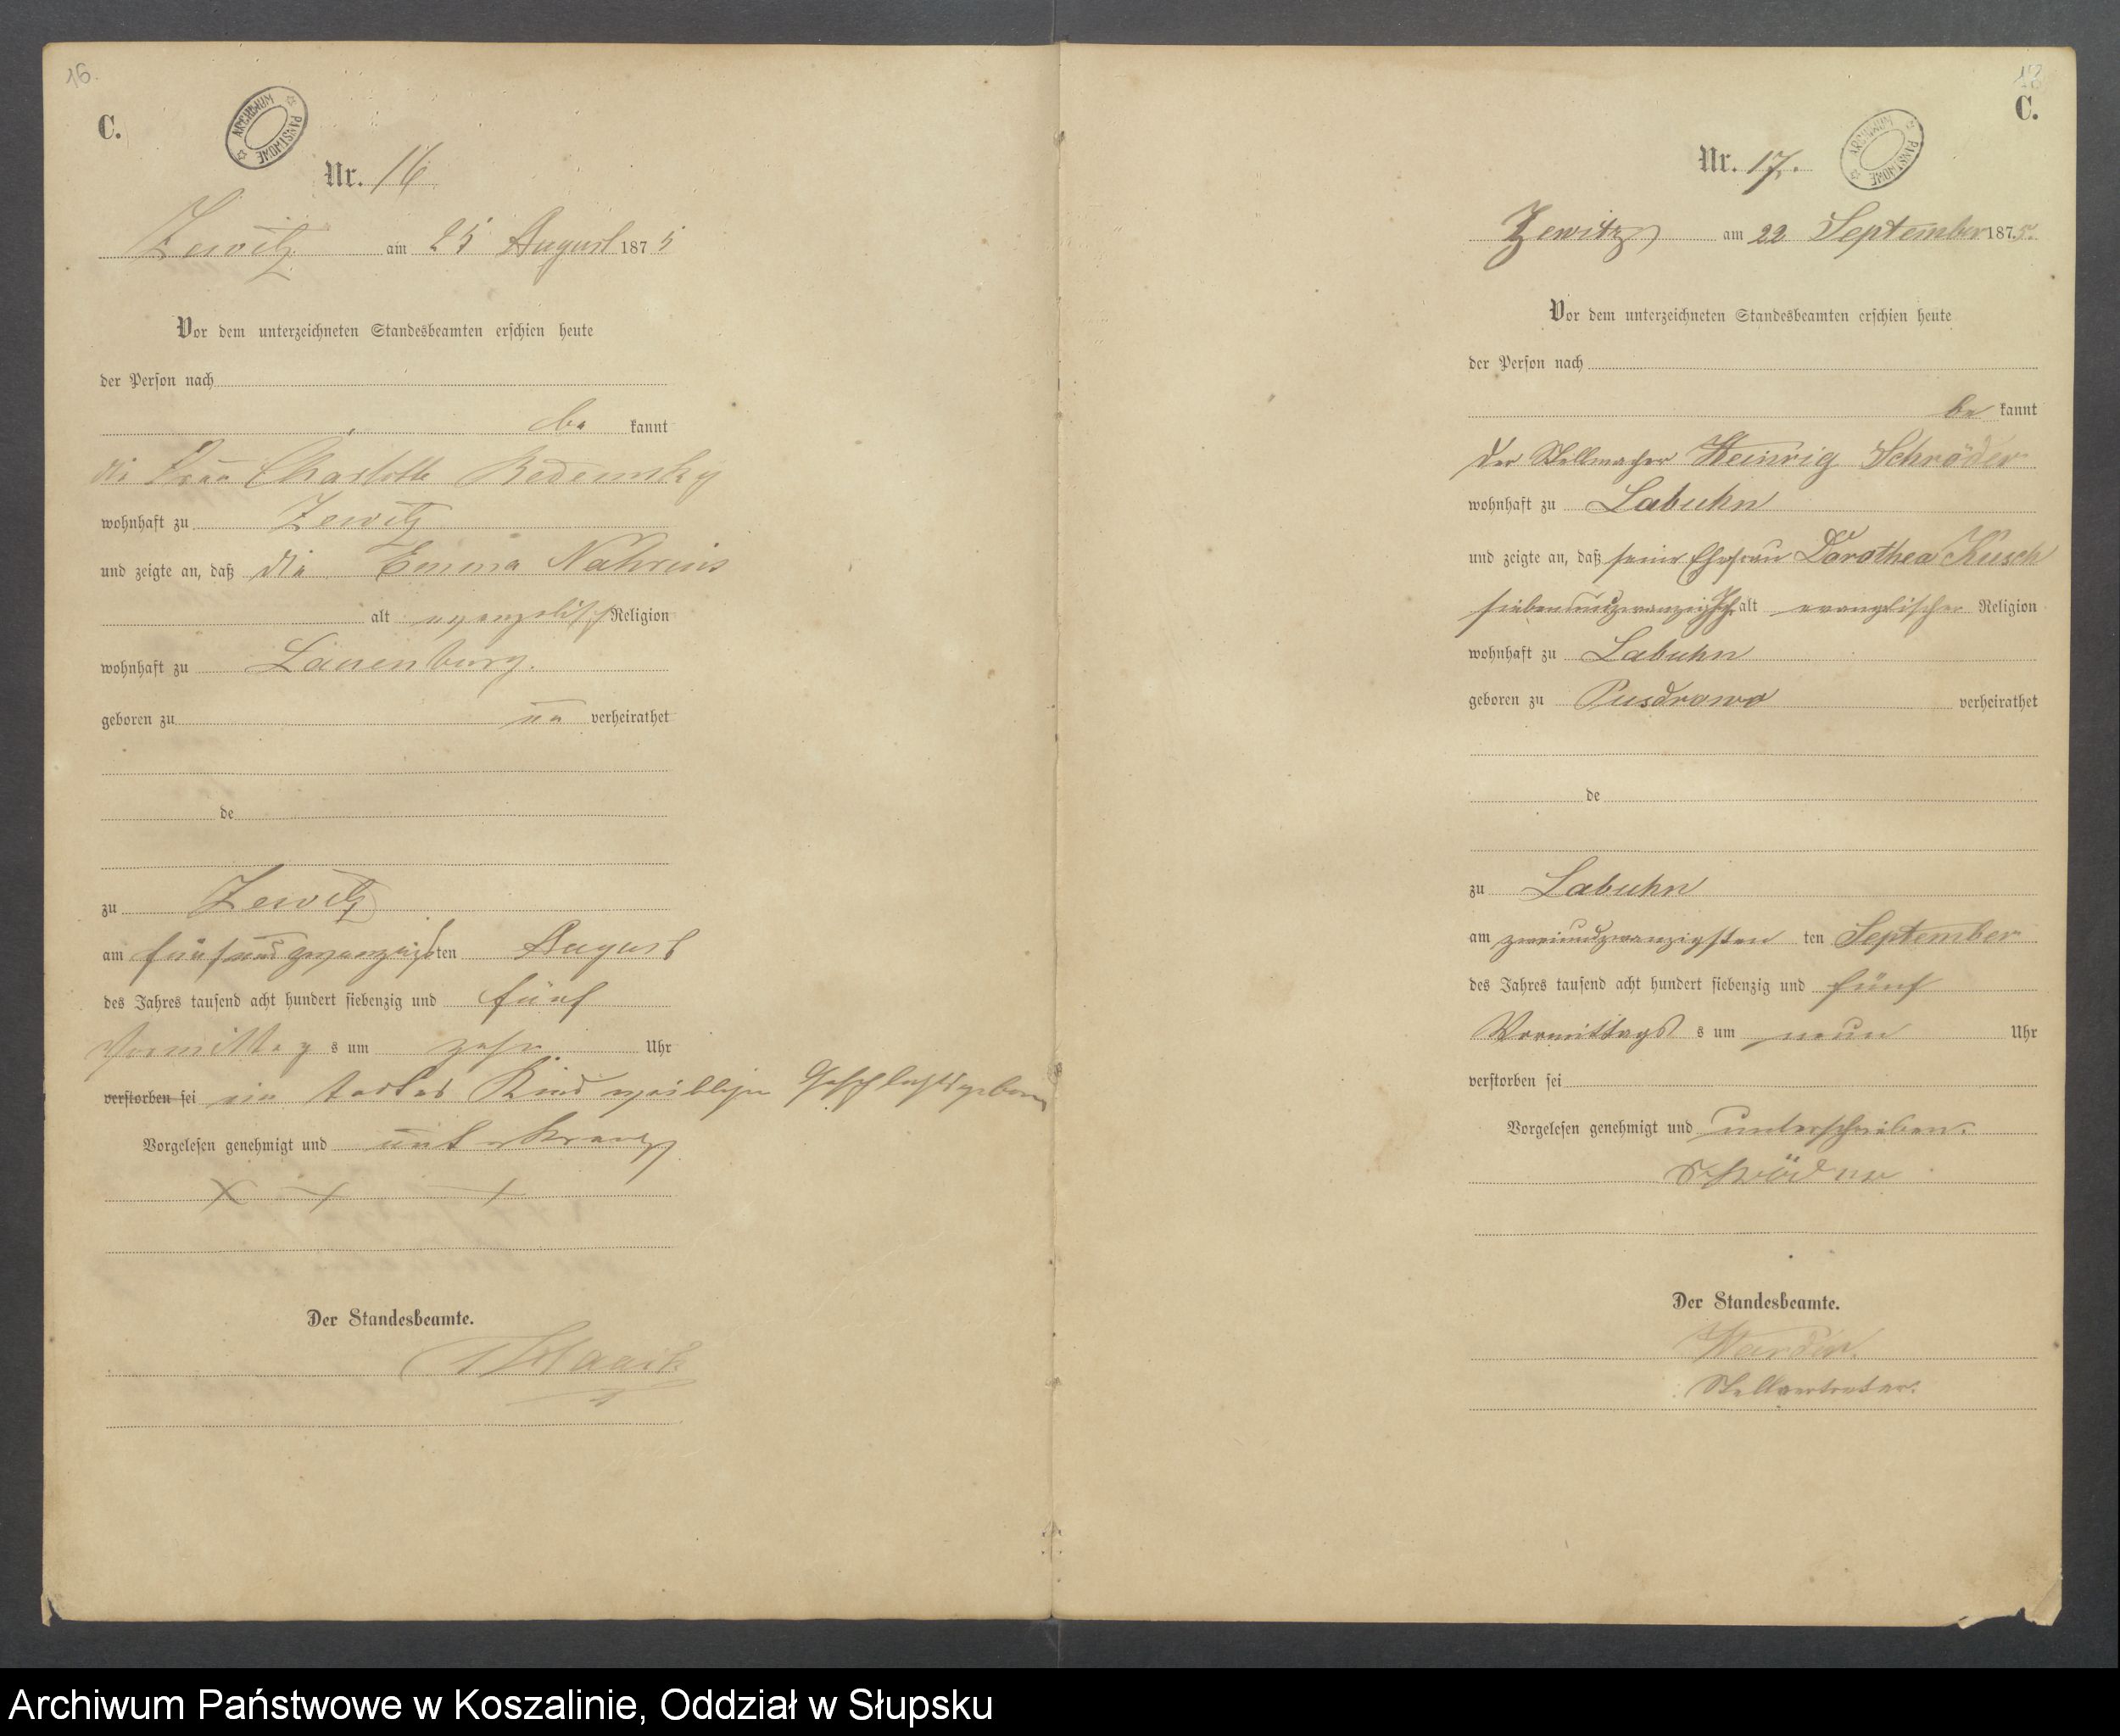 16.
C.
ARCHIWUM PAŃSTWOWE
Nr. 16
Zewitz am 25 August 1875
Vor dem unterzeichneten Standesbeamten erschien heute
der Person nach
be kannt
die Frau Charlotte
wohnhaft zu Zewitz
und zeigte an, daß die Emma
alt evangelisch Religion
wohnhaft zu Lauenburg.
geboren zu un verheirathet
de
zu Zewitz
am fünfundzwanzigsten August
des Jahres tausend acht hundert siebenzig und fünf
Vormittag s um zehn Uhr
verstorben sei ein todtes Kind weiblichen Geschlechts geboren
Vorgelesen genehmigt und unterkreuzt
X X X
Der Standesbeamte.
C.
ARCHIWUM PAŃSTWOWE
Nr. 17.
Zewitz am 22 September 1875.
Vor dem unterzeichneten Standesbeamten erschien heute
der Person nach
be kannt
Der Stellmacher Heinrig Schröder
wohnhaft zu Labuhn
und zeigte an, daß seine Ehefrau Dorothea Kusch
siebenundzwanzig J. alt evangelischer Religion
wohnhaft zu Labuhn
geboren zu Pusdrowo verheirathet
de
zu Labuhn
am zweiundzwanzigsten ten September
des Jahres tausend acht hundert siebenzig und fünf
Vormittags s um neun Uhr
verstorben sei
Vorgelesen genehmigt und unterschrieben.
Schröder
Der Standesbeamte.
Stellvertreter.
Archiwum Państwowe w Koszalinie, Oddział w Słupsku